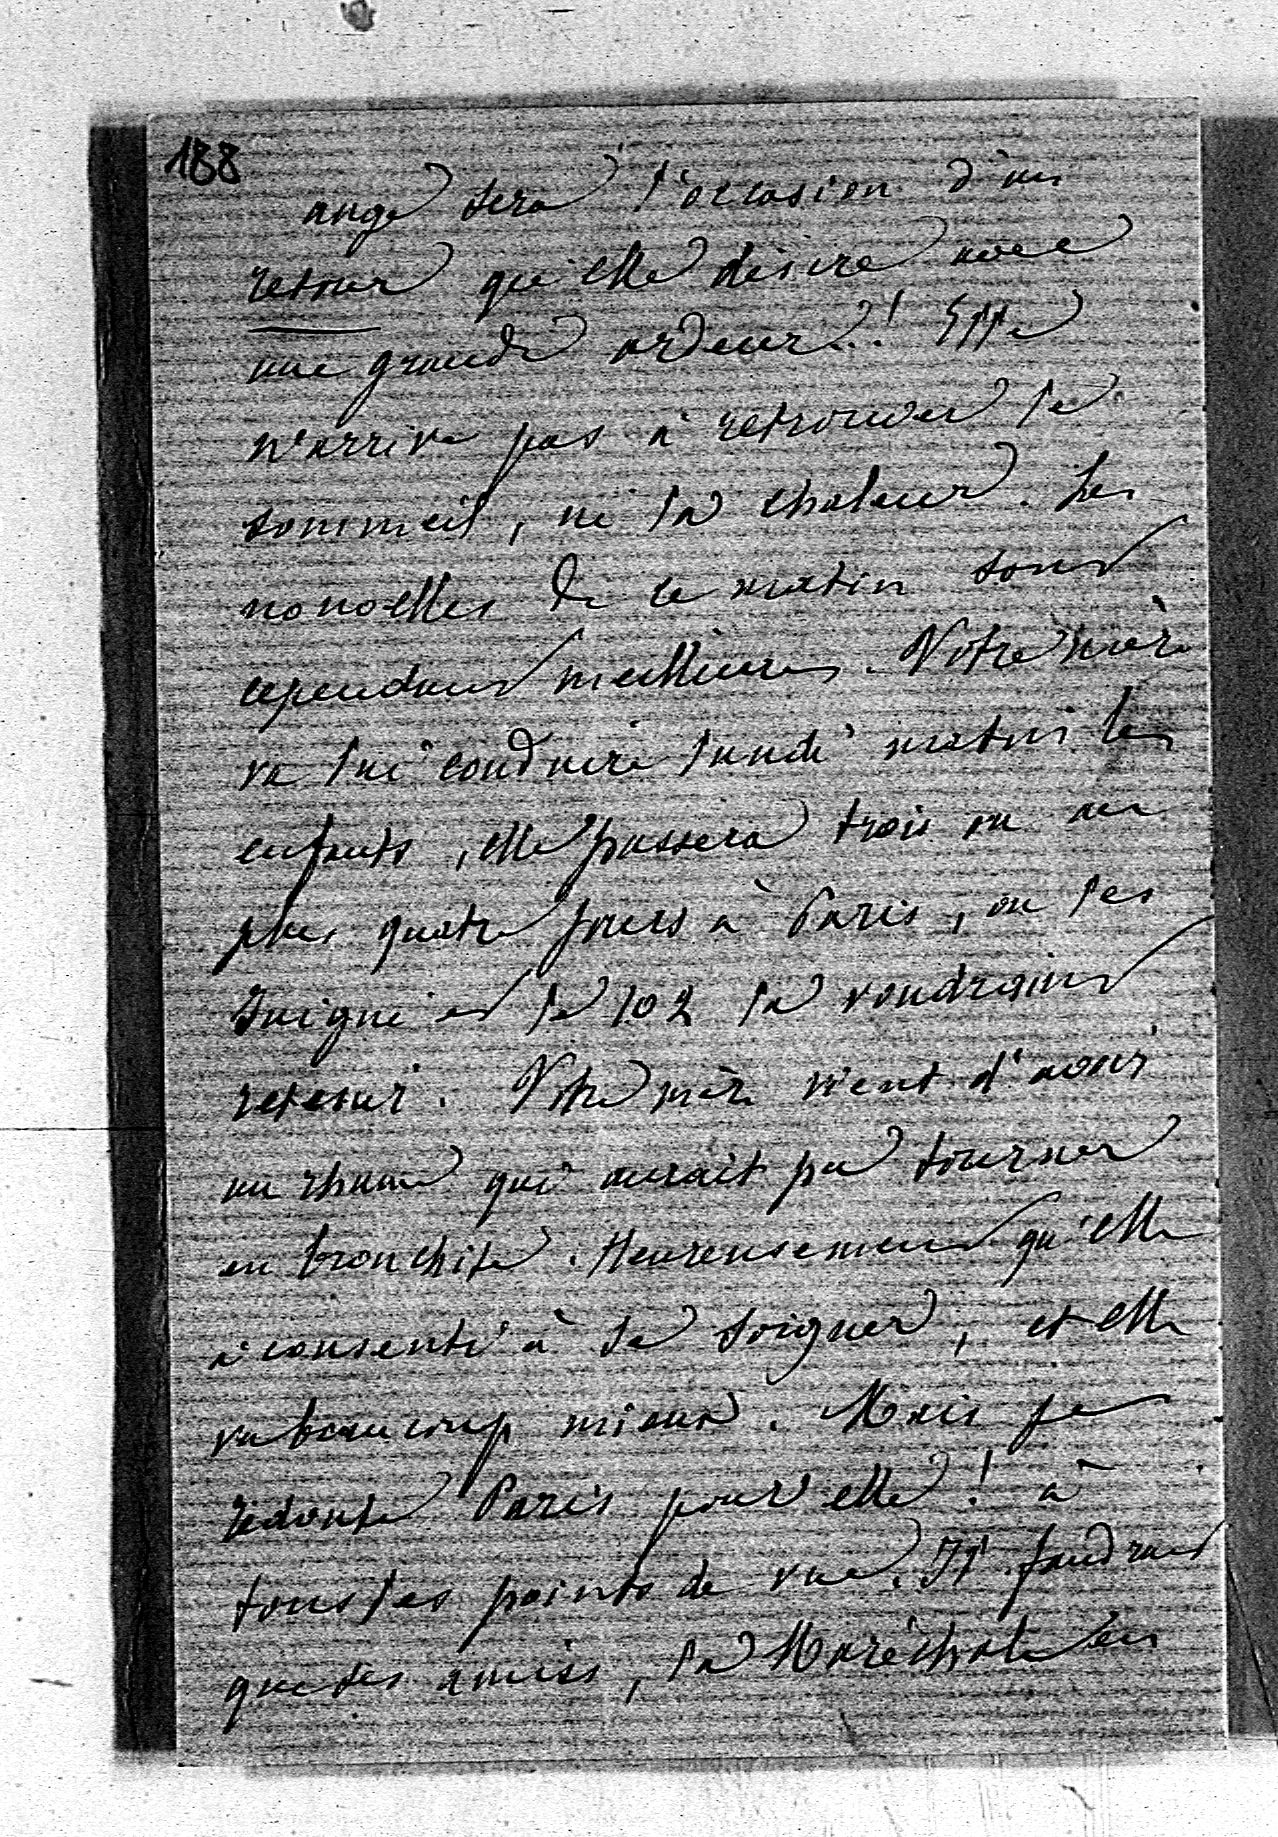 188
ange sera l'occasion d'un
retour qu'elle désire avec
une grande ardeur..! Elle
n'arrive pas à retrouver le
sommeil, ni la chaleur. Les
nouvelles de ce matin sont
cependant meilleures. Votre mère
va lui conduire lundi matin les
enfants, elle passera trois ou au
plus quatre jours à Paris, où les
Juigné et le 102 la voudraient
retenir. Votre mère vient d'avoir
un rhume qui aurait pu tourner
en bronchite. Heureusement qu'elle
a consenti à se soigner, et elle
va beaucoup mieux. Mais je
redoute Paris pour elle! à
tous les points de vue. Il faudrait
que ses amies, la Maréchale en